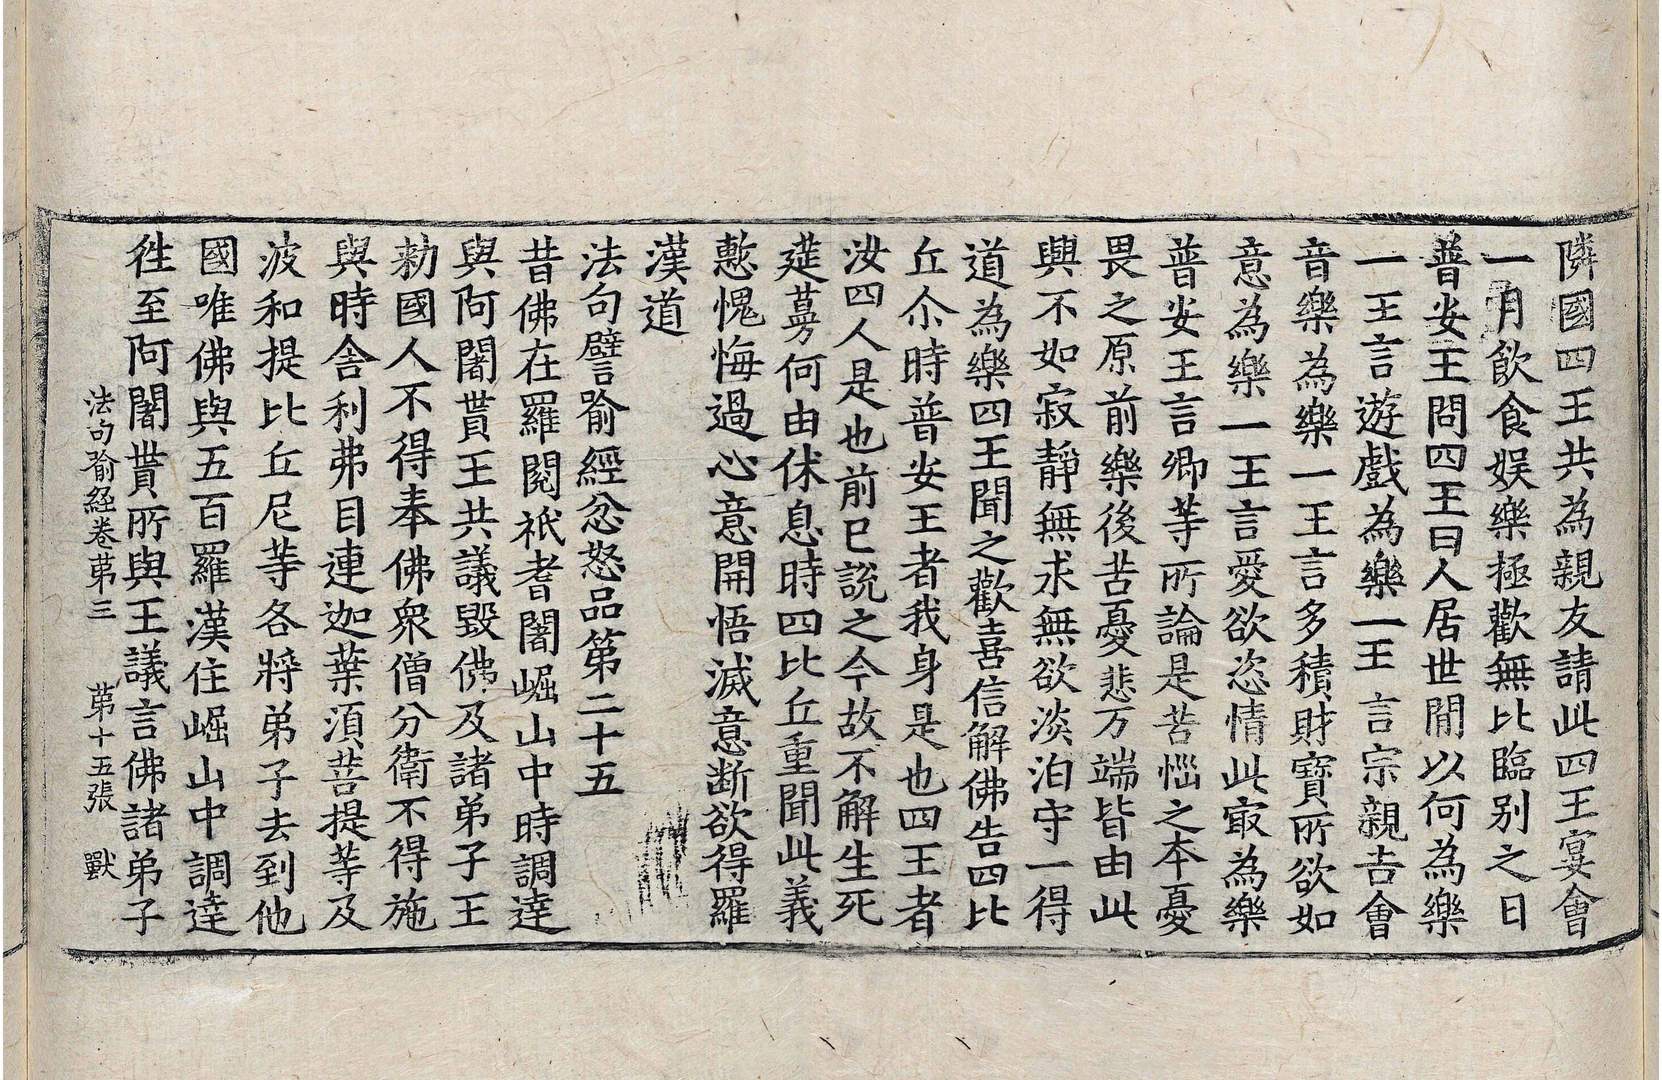 隣國四王共為親友請此四王宴會
一月飲食娛樂極歡無比臨別之日
普安王問四王曰人居世間以何為樂
一王言遊戲為樂一王言宗親吉會
音樂為樂一王言多積財寶所欲如
意為樂一王言愛欲恣情此㝡為樂
普安王言卿等所論是苦惱之本憂
畏之原前樂後苦憂悲万端皆由此
興不如寂靜無求無欲淡泊守一得
道為樂四王聞之歡喜信解佛告四比
丘尒時普安王者我身是也四王者
汝四人是也前已說之今故不解生死
莚蔓何由休息時四比丘重聞此義
慙愧悔過心意開悟滅意斷欲得羅
漢道
法句譬喻經忿怒品第二十五
昔佛在羅閱祇耆闍崛山中時調達
與阿闍貰王共議毀佛及諸弟子王
勑國人不得奉佛衆僧分衛不得施
與時舍利弗目連迦葉湏菩提等及
波和提比丘尼等各將弟子去到他
國唯佛與五百羅漢住崛山中調達
徃至阿闍貰所與王議言佛諸弟子
法句喻經卷苐三 苐十五張 獸